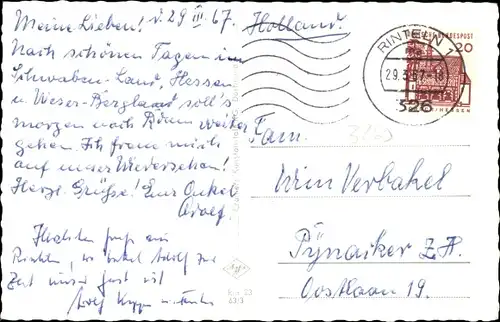 Meine Lieben! d. 29 III. 67. Holland.
Nach schönen Tagen im
Schwaben-Land, Hessen
u Weser-Bergland soll's
morgen nach Bonn weiter
gehen Ich freue mich
auf unser Wiedersehen!
Herzl. Grüße! Euer Onkel
Adolf
Herzlichen Gruß aus
Rinteln, wo Onkel Adolf zur
Zeit unser Gast ist
Adolf
RINTELN 1
29.3.67-18
326
DEUTSCHE BUNDESPOST
20
HESSEN
Fam.
Wim Verbakel
Pijnacker Z.H.
Oostlaan 19.